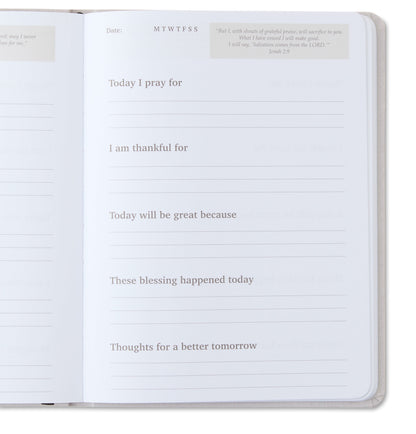 Date:
M T W T F S S
"But I, with shouts of grateful praise, will sacrifice to you.
What I have vowed I will make good.
I will say, 'Salvation comes from the LORD.'"
Today I pray for
I am thankful for
Today will be great because
These blessing happened today
Thoughts for a better tomorrow